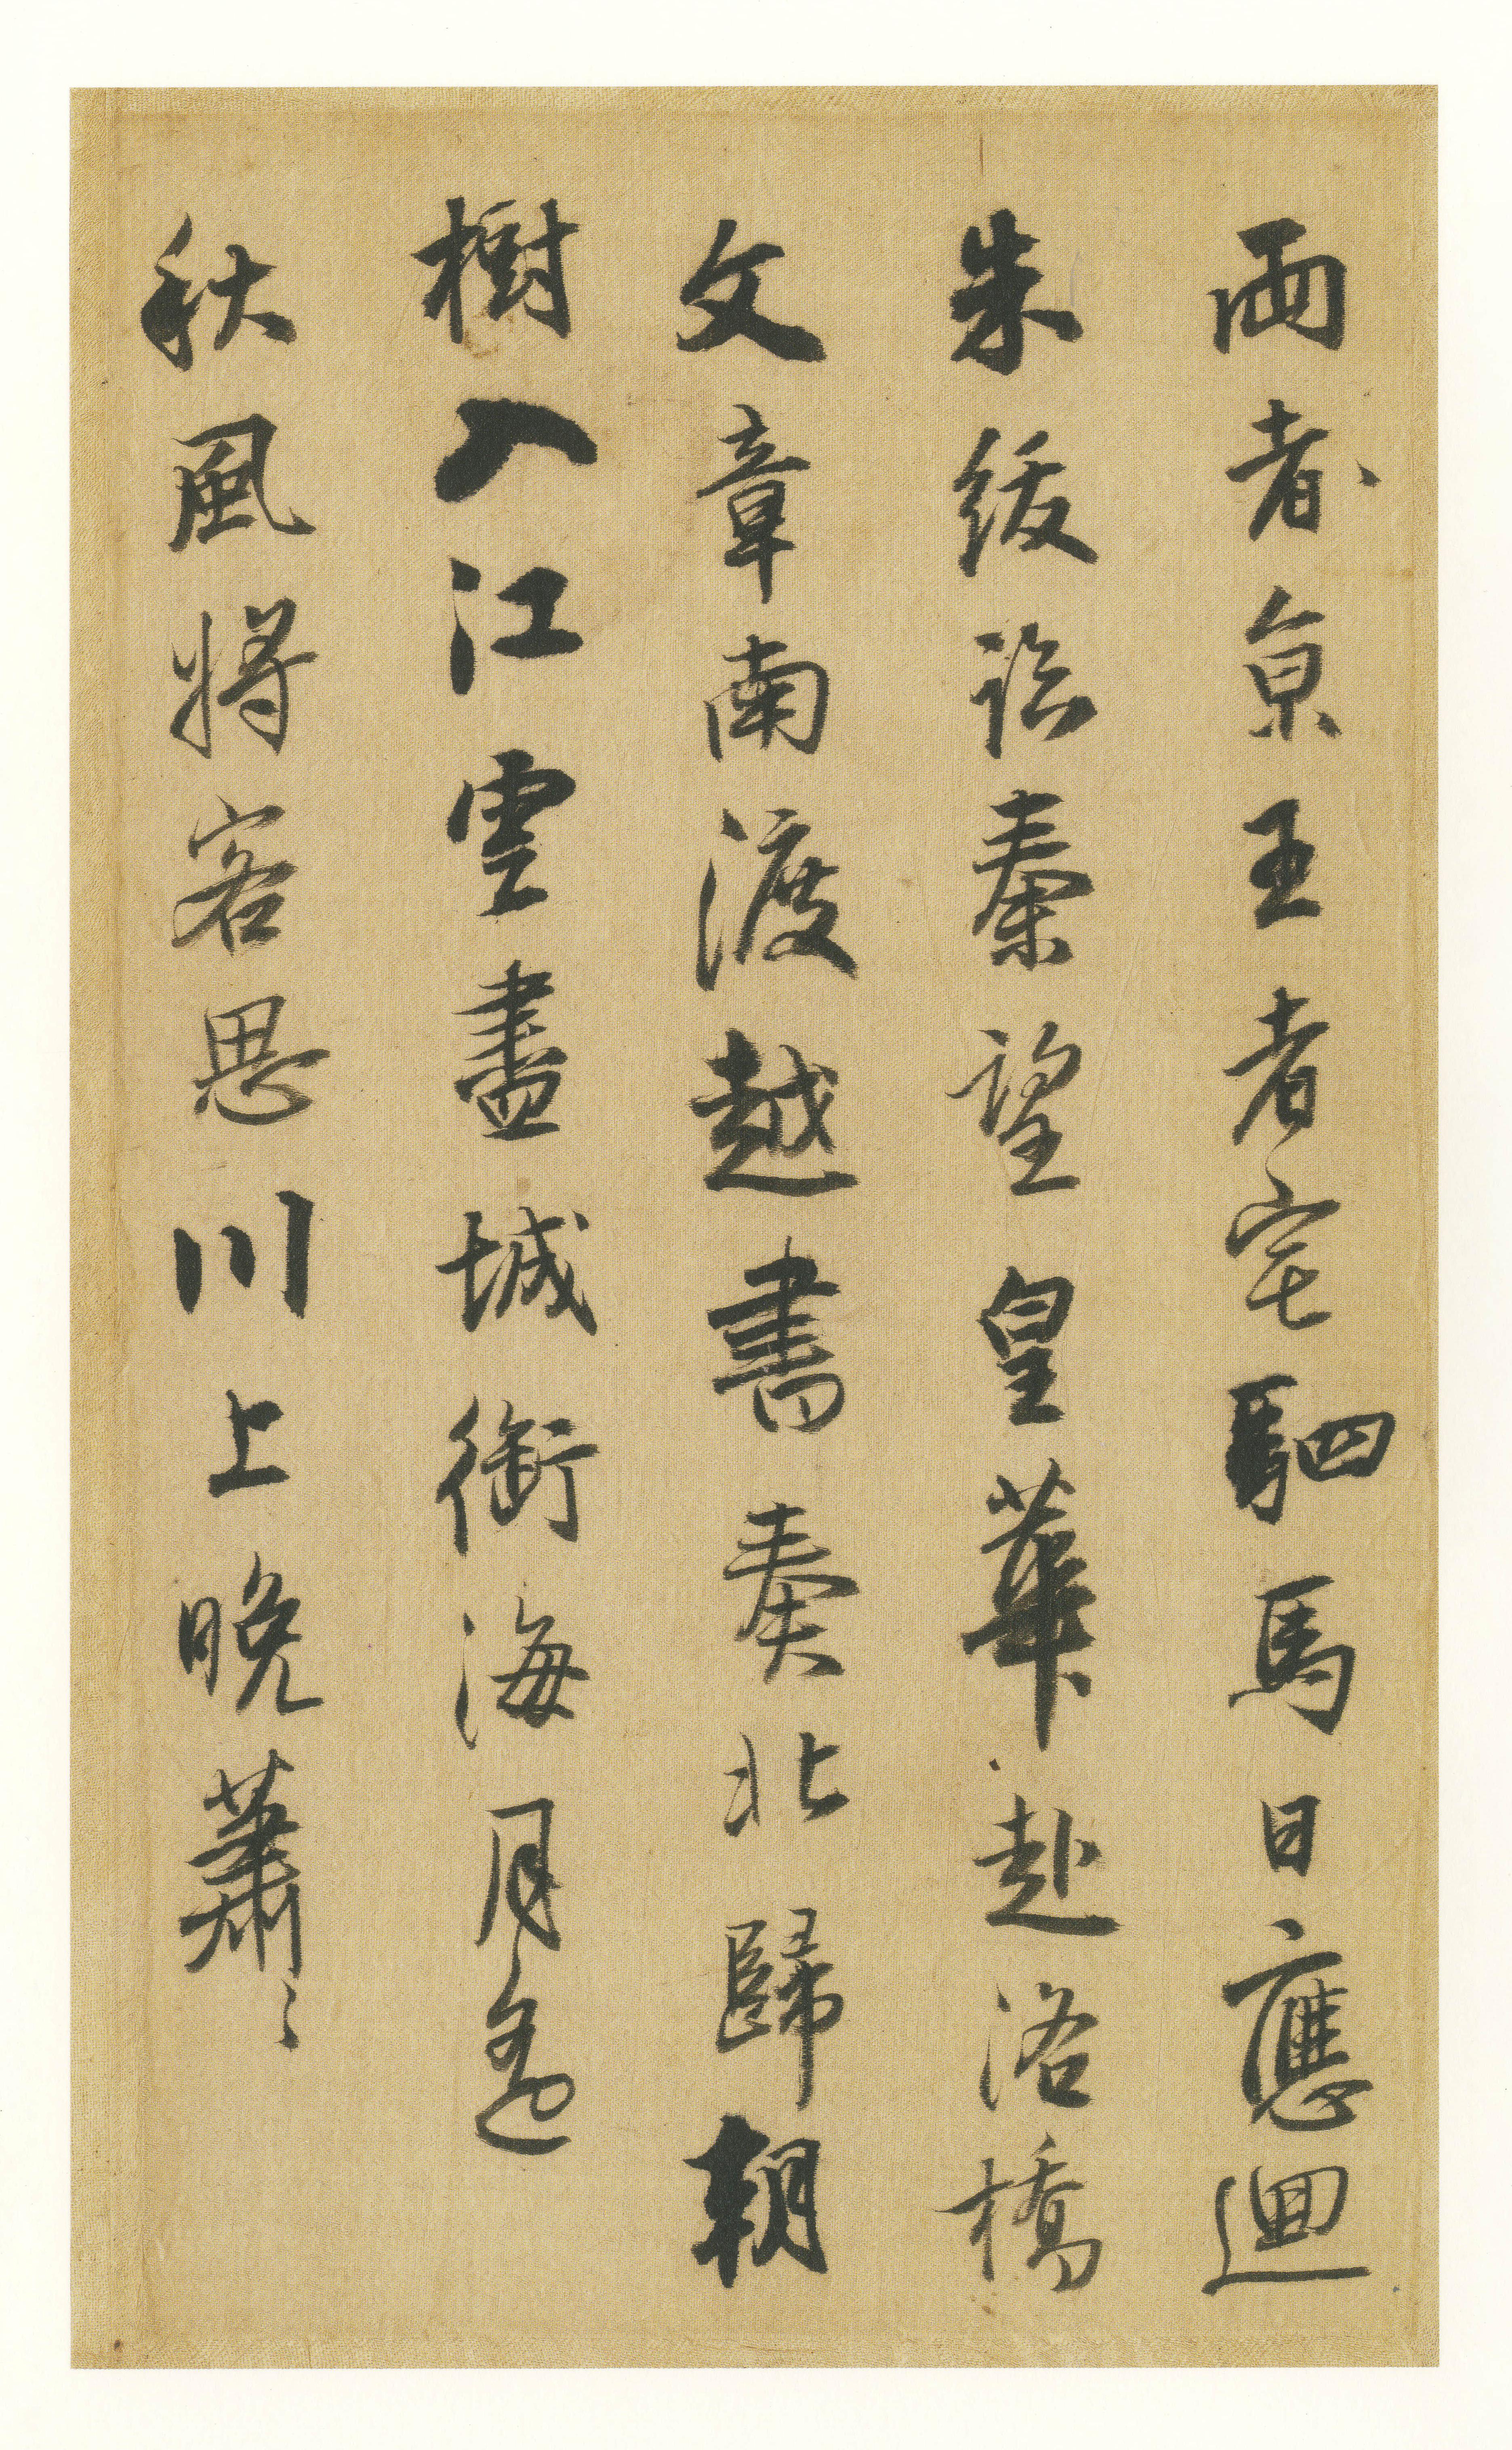 兩都京王者宅駟馬日應迴
朱紱詒秦望皇華赴洛橋
文章南渡越書奏北歸朝
樹入江雲盡城銜海月遙
秋風將客思川上晚蕭〻